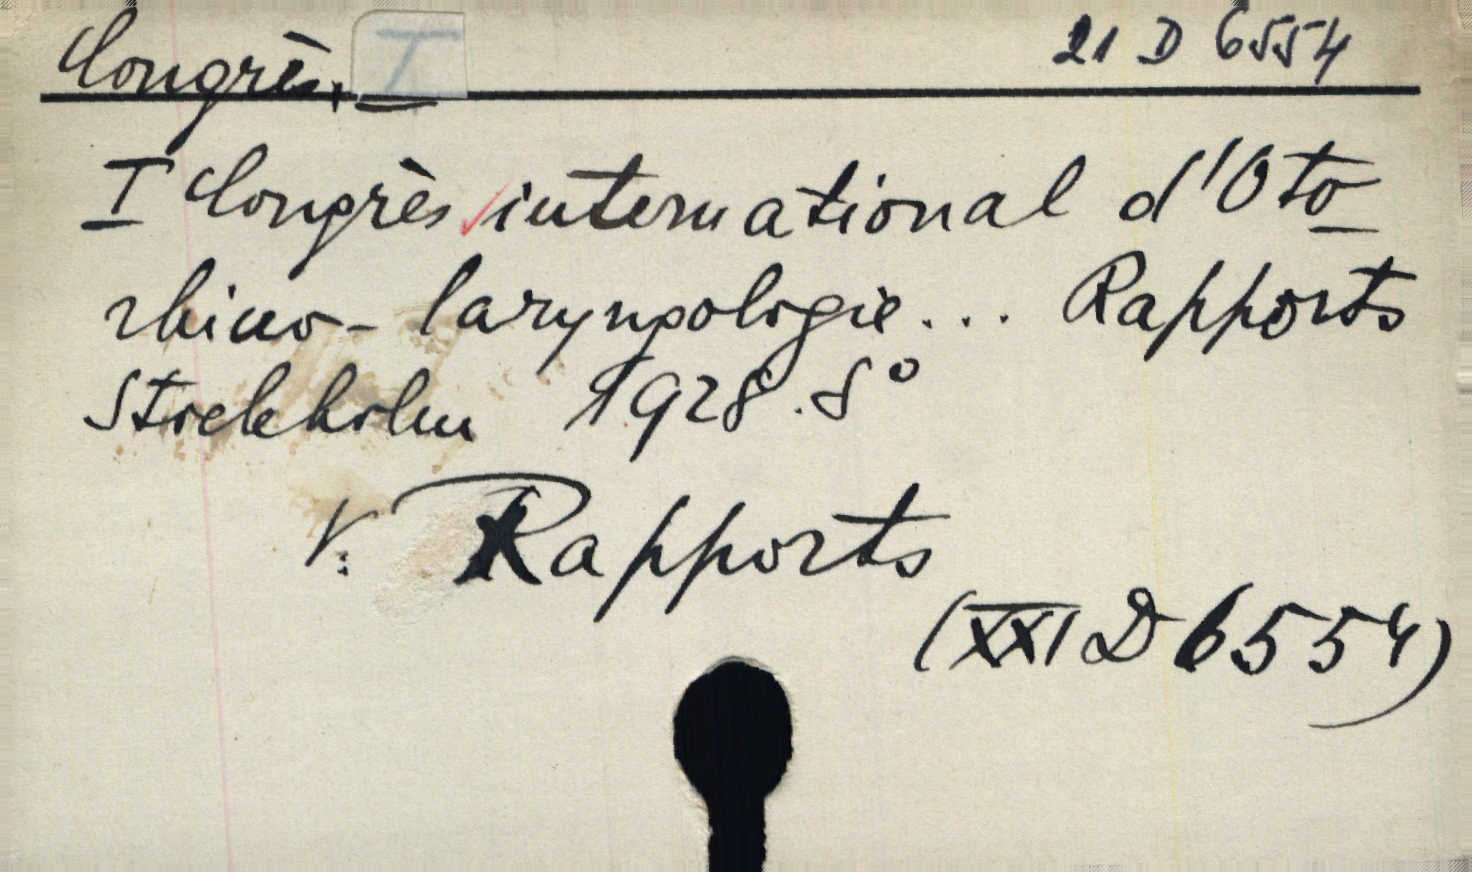 Congrès, I 21 D 6554
I Congrès international d'Oto
rhino-laryngologie... Rapports
Stockholm 1928. 8°
V: Rapports
(XXI D 6554)